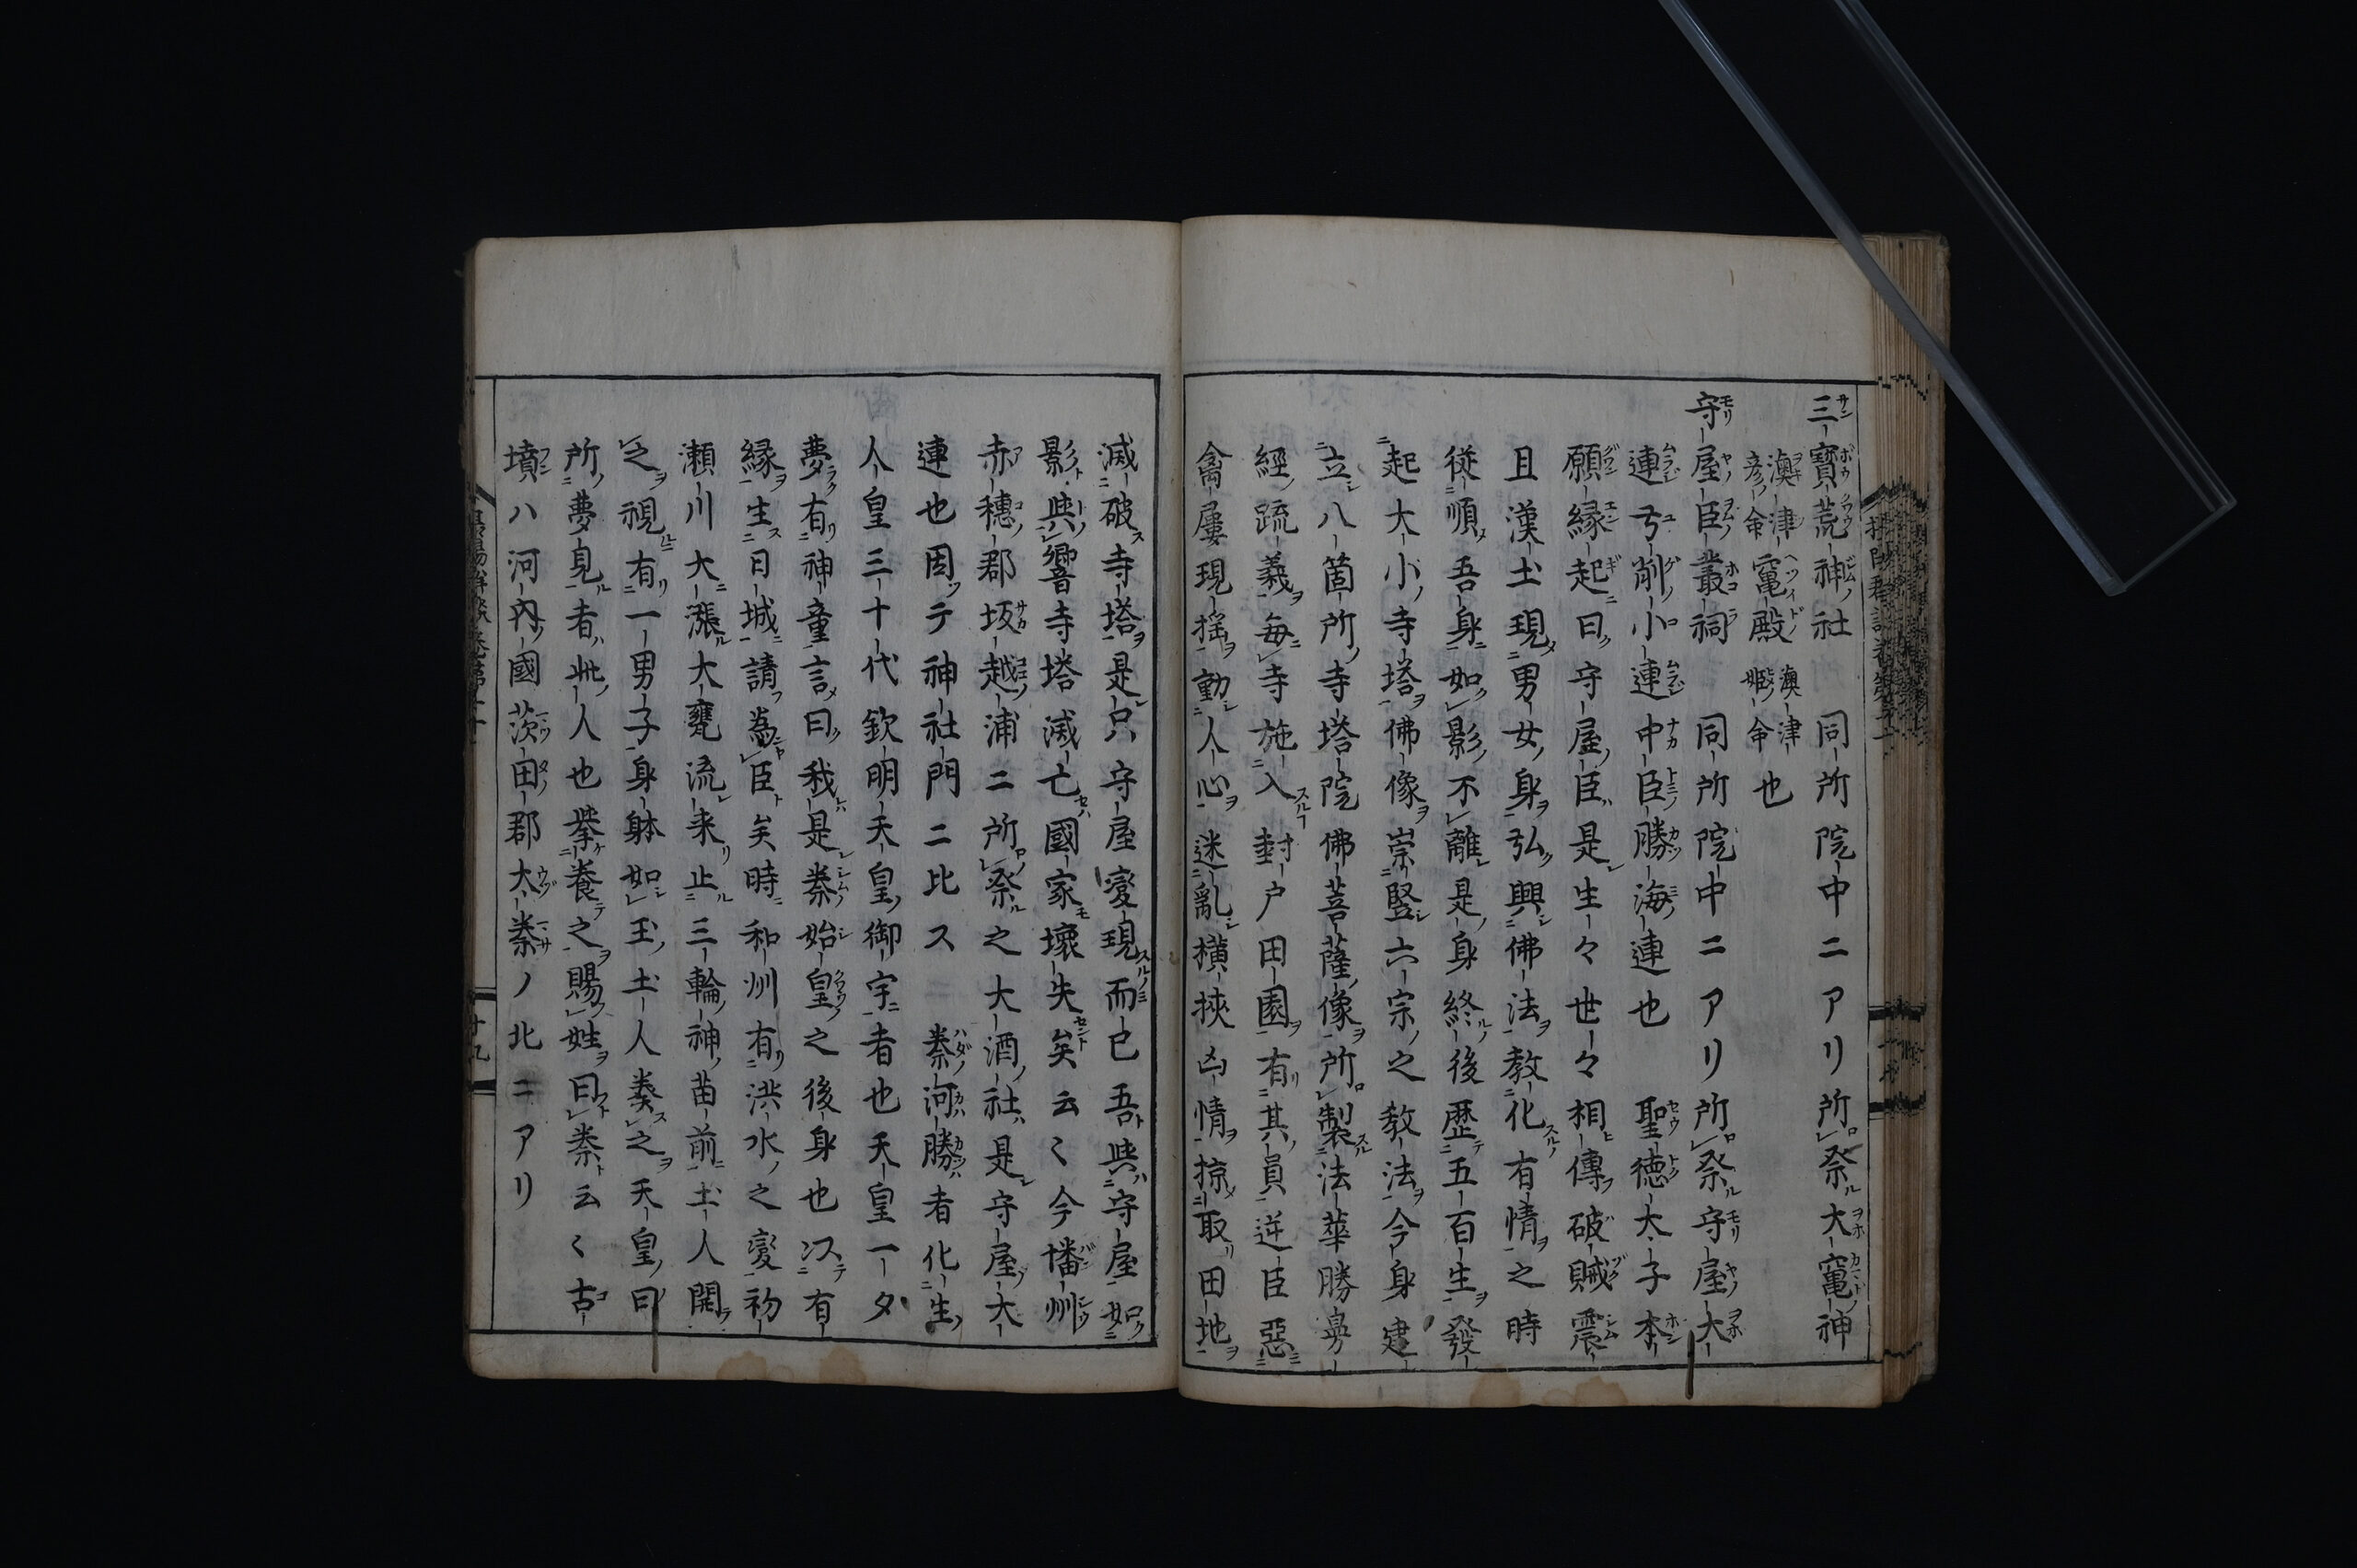 三寶荒神社　同所院中ニアリ所祭大竈神
澳津彦命竈殿澳津姫命也
守屋臣叢祠　同所院中ニアリ所祭守屋大
連弓削小連中臣勝海連也　聖徳太子本
願縁起曰守屋臣是生々世々相傳破賊震
且漢土現男女身弘興佛法教化有情之時
従順吾身如影不離是身終後歴五百生發
起大小寺塔佛像崇竪六宗之教法今身建
立八箇所寺塔院佛菩薩像所製法華勝鼻
經疏義毎寺施入封戸田園有其員逆臣惡
禽屢現揺動人心迷亂横挾凶情掠取田地
滅破寺塔是只守屋變現而已吾與守屋如
影與響寺塔滅亡國家壞失矣云〻今幡州
赤穗郡坂越浦ニ所祭之大酒社是守屋大
連也因テ神社門ニ比ス　秦河勝者化生
人皇三十代欽明天皇御宇者也天皇一夕
夢有神童言曰我是秦始皇之後身也以有
縁生日城請為臣矣時和州有洪水之變初
瀬川大漲大甕流来止三輪神苗前土人開
之視有一男子身躰如玉土人奏之天皇曰
所夢見者此人也擧養之賜姓曰秦云〻古
墳ハ河内國茨田郡太秦ノ北ニアリ
十九